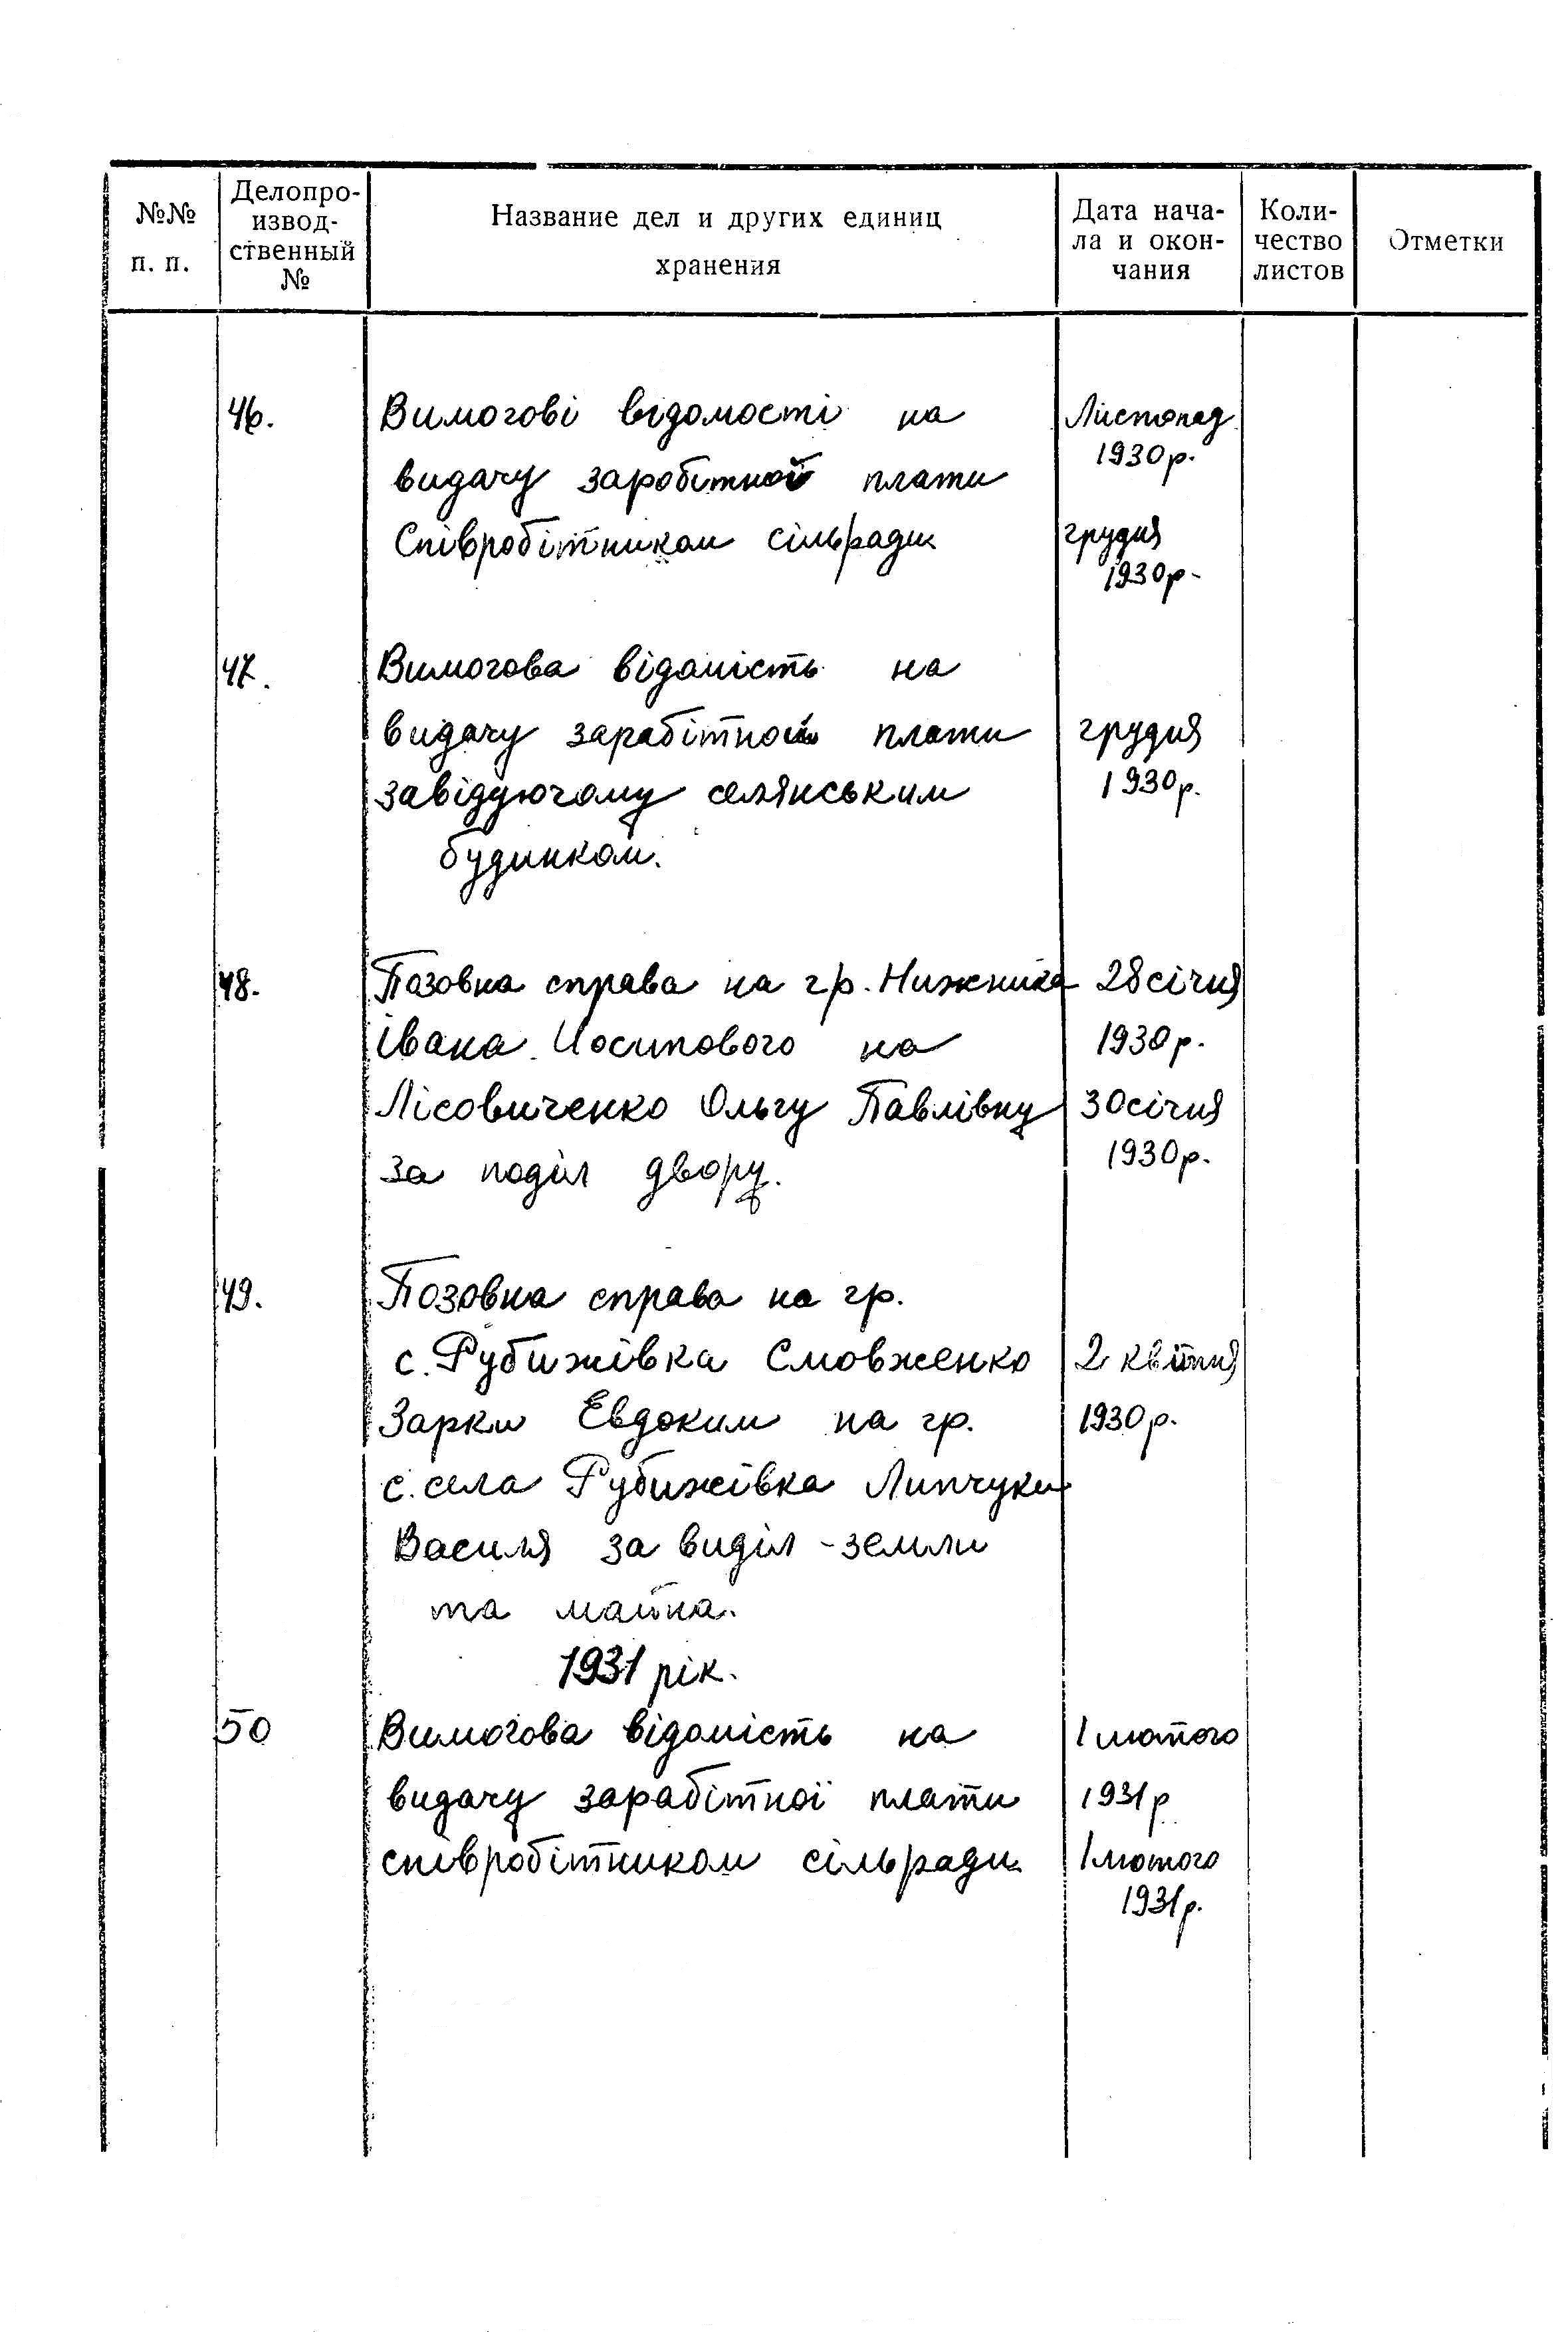 №№ п. п.
Делопро-
извод-
ственный
№
Название дел и других единиц
хранения
Дата нача-
ла и окон-
чания
Коли-
чество
листов
Отметки
46. Вимогові відомості на Листопад
1930р.
видачу заробітной плати
Співробітникам сільради грудня
1930р.
47. Вимогова відомість на
видачу заробітной плати грудня
завідуючому селянським 1930р.
будинком.
48. Позовна справа на гр. Нижника 28 січня
Івана Иосипового на 1930р.
Лісовиченко Ольгу Павлівну 30 січня
за поділ двору. 1930р.
49. Позовна справа на гр.
с. Рубижівка Смовженко 2 квітня
Зарки Евдоким на гр. 1930р.
с. села Рубижівка Липчуки
Василя за виділ - земли
та майна.
1931 рік.
50 Вимогова відомість на 1 лютого
видачу заробітної плати 1931р
співробітникам сільради 1 лютого
1931р.